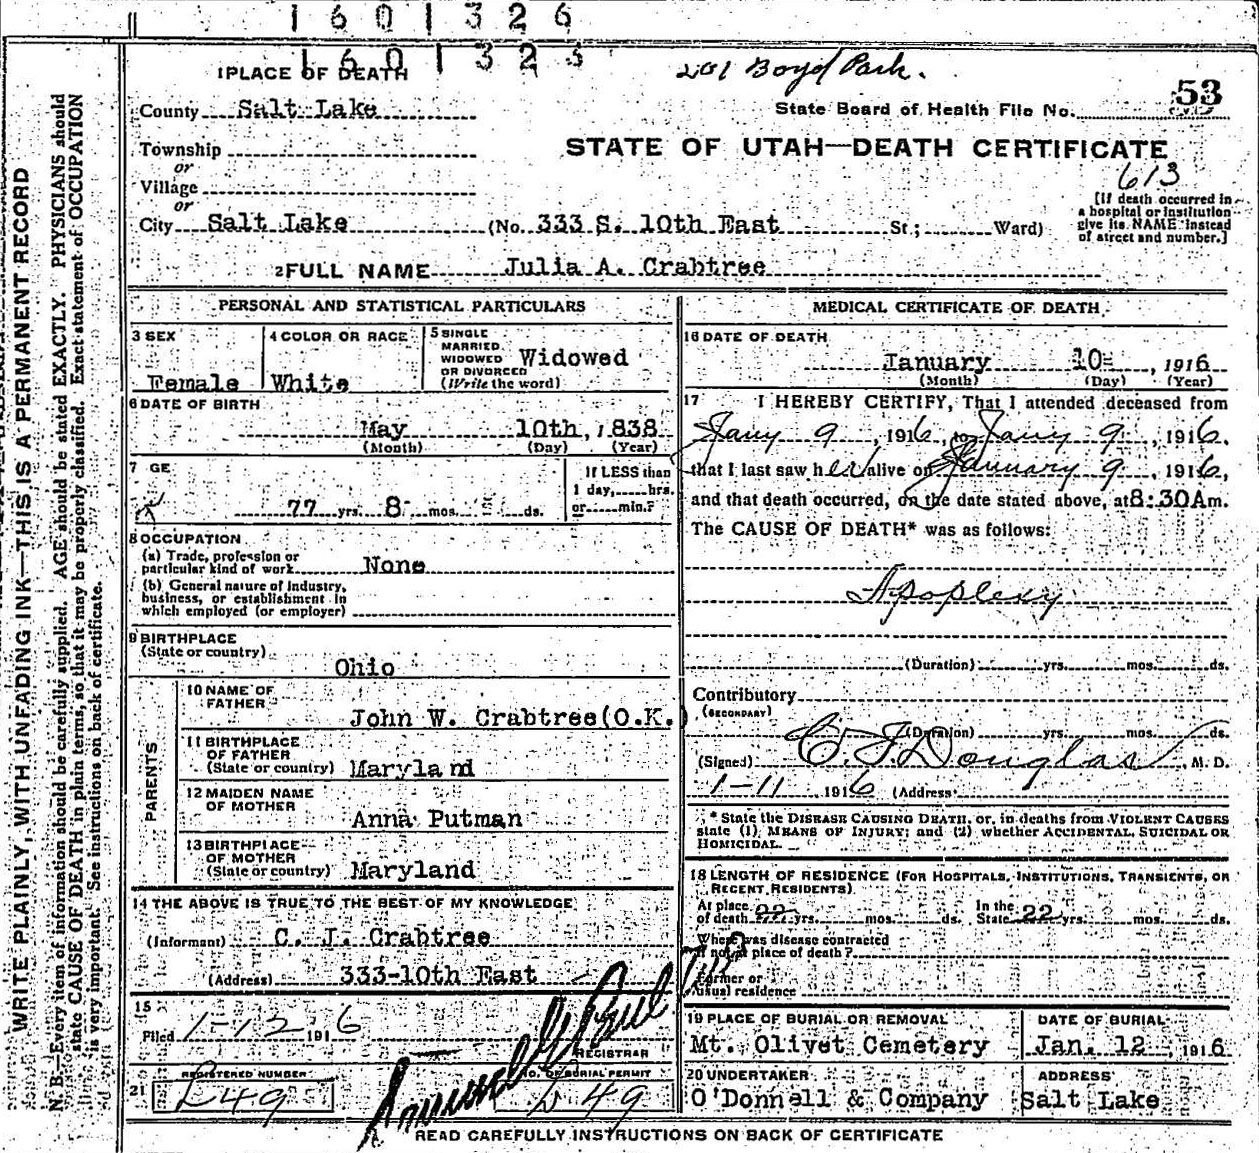 1601326
1601326
201 Boyd Park.
1 PLACE OF DEATH
County Salt Lake
State Board of Health File No. 53
Township
or
Village
or
STATE OF UTAH—DEATH CERTIFICATE
613
City Salt Lake (No. 333 S. 10th East St.; Ward)
[If death occurred in
a hospital or institution
give its NAME instead
of street and number.]
2 FULL NAME Julia A. Crabtree
PERSONAL AND STATISTICAL PARTICULARS
3 SEX
Female
4 COLOR OR RACE
White
5 SINGLE
MARRIED
WIDOWED
OR DIVORCED
(Write the word)
Widowed
6 DATE OF BIRTH
May 10th, 1838
(Month) (Day) (Year)
7 GE
77 yrs. 8 mos. ds.
If LESS than
1 day, hrs.
or min.?
8 OCCUPATION
(a) Trade, profession or
particular kind of work None
(b) General nature of Industry,
business, or establishment in
which employed (or employer)
9 BIRTHPLACE
(State or country)
Ohio
PARENTS
10 NAME OF
FATHER
John W. Crabtree(O.K.)
11 BIRTHPLACE
OF FATHER
(State or country) Maryland
12 MAIDEN NAME
OF MOTHER
Anna Putman
13 BIRTHPLACE
OF MOTHER
(State or country) Maryland
14 THE ABOVE IS TRUE TO THE BEST OF MY KNOWLEDGE
(Informant) C. J. Crabtree
(Address) 333-10th East
15
Filed 1-12 1916
REGISTRAR
21
REGISTERED NUMBER
L49
NO. OF BURIAL PERMIT
L49
MEDICAL CERTIFICATE OF DEATH
16 DATE OF DEATH
January 10 , 1916
(Month) (Day) (Year)
17 I HEREBY CERTIFY, That I attended deceased from
Jany 9, 1916, to Jany 9, 1916,
that I last saw her alive on January 9, 1916,
and that death occurred, on the date stated above, at 8:30Am.
The CAUSE OF DEATH* was as follows:
Apoplexy
(Duration) yrs. mos. ds.
Contributory
(SECONDARY)
(Duration) yrs. mos. ds.
(Signed) C. F. Douglas, M. D.
1-11 1916 (Address)
* State the DISEASE CAUSING DEATH, or, in deaths from VIOLENT CAUSES
state (1) MEANS OF INJURY; and (2) whether ACCIDENTAL, SUICIDAL OR
HOMICIDAL.
18 LENGTH OF RESIDENCE (FOR HOSPITALS, INSTITUTIONS, TRANSIENTS, OR
RECENT RESIDENTS).
At place
of death 22 yrs. mos. ds.
In the
State 22 yrs. mos. ds.
Where was disease contracted
if not at place of death?
Former or
usual residence
19 PLACE OF BURIAL OR REMOVAL
Mt. Olivet Cemetery
DATE OF BURIAL
Jan. 12, 1916
20 UNDERTAKER
O'Donnell & Company
ADDRESS
Salt Lake
READ CAREFULLY INSTRUCTIONS ON BACK OF CERTIFICATE
WRITE PLAINLY, WITH UNFADING INK—THIS IS A PERMANENT RECORD
N. B.—Every item of information should be carefully supplied. AGE should be stated EXACTLY. PHYSICIANS should
state CAUSE OF DEATH in plain terms, so that it may be properly classified. Exact statement of OCCUPATION
is very important. See instructions on back of certificate.